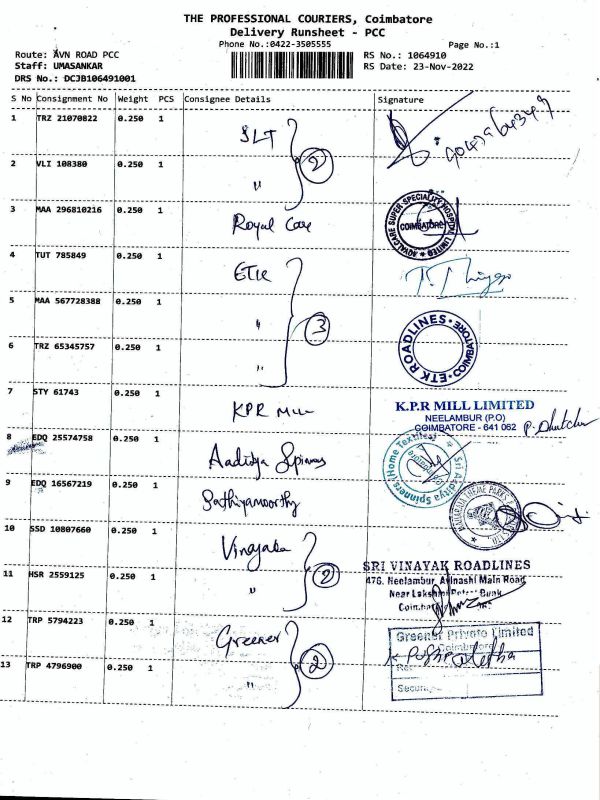 THE PROFESSIONAL COURIERS, Coimbatore
Delivery Runsheet - PCC
Phone No.:0422-3505555 Page No.:1
Route: AVN ROAD PCC RS No.: 1064910
Staff: UMASANKAR RS Date: 23-Nov-2022
DRS No.: DCJB106491001
S No Consignment No Weight PCS Consignee Details Signature
1 TRZ 21070822 0.250 1 SLT
2
2 VLI 108380 0.250 1 "
3 MAA 296810216 0.250 1 Royal Care
COIMBATORE
4 TUT 785849 0.250 1 ETK
5 MAA 567728388 0.250 1 "
3
ETK ROADLINES * COIMBATORE
6 TRZ 65345757 0.250 1 "
7 STY 61743 0.250 1 KPR Mill
K.P.R MILL LIMITED
NEELAMBUR (P.O)
COIMBATORE - 641 062
8 EDQ 25574758 0.250 1 Aaditya Spinners
Sri Aditya Spinners (Home Textiles)
9 EDQ 16567219 0.250 1 Sathiyamoorthy
10 SSD 10807660 0.250 1 Vinayaka
2
SRI VINAYAK ROADLINES
476, Neelambur, Avinashi Main Road
11 HSR 2559125 0.250 1 "
12 TRP 5794223 0.250 1 Greener
2
Greener Private Limited
Coimbatore
13 TRP 4796900 0.250 1 "